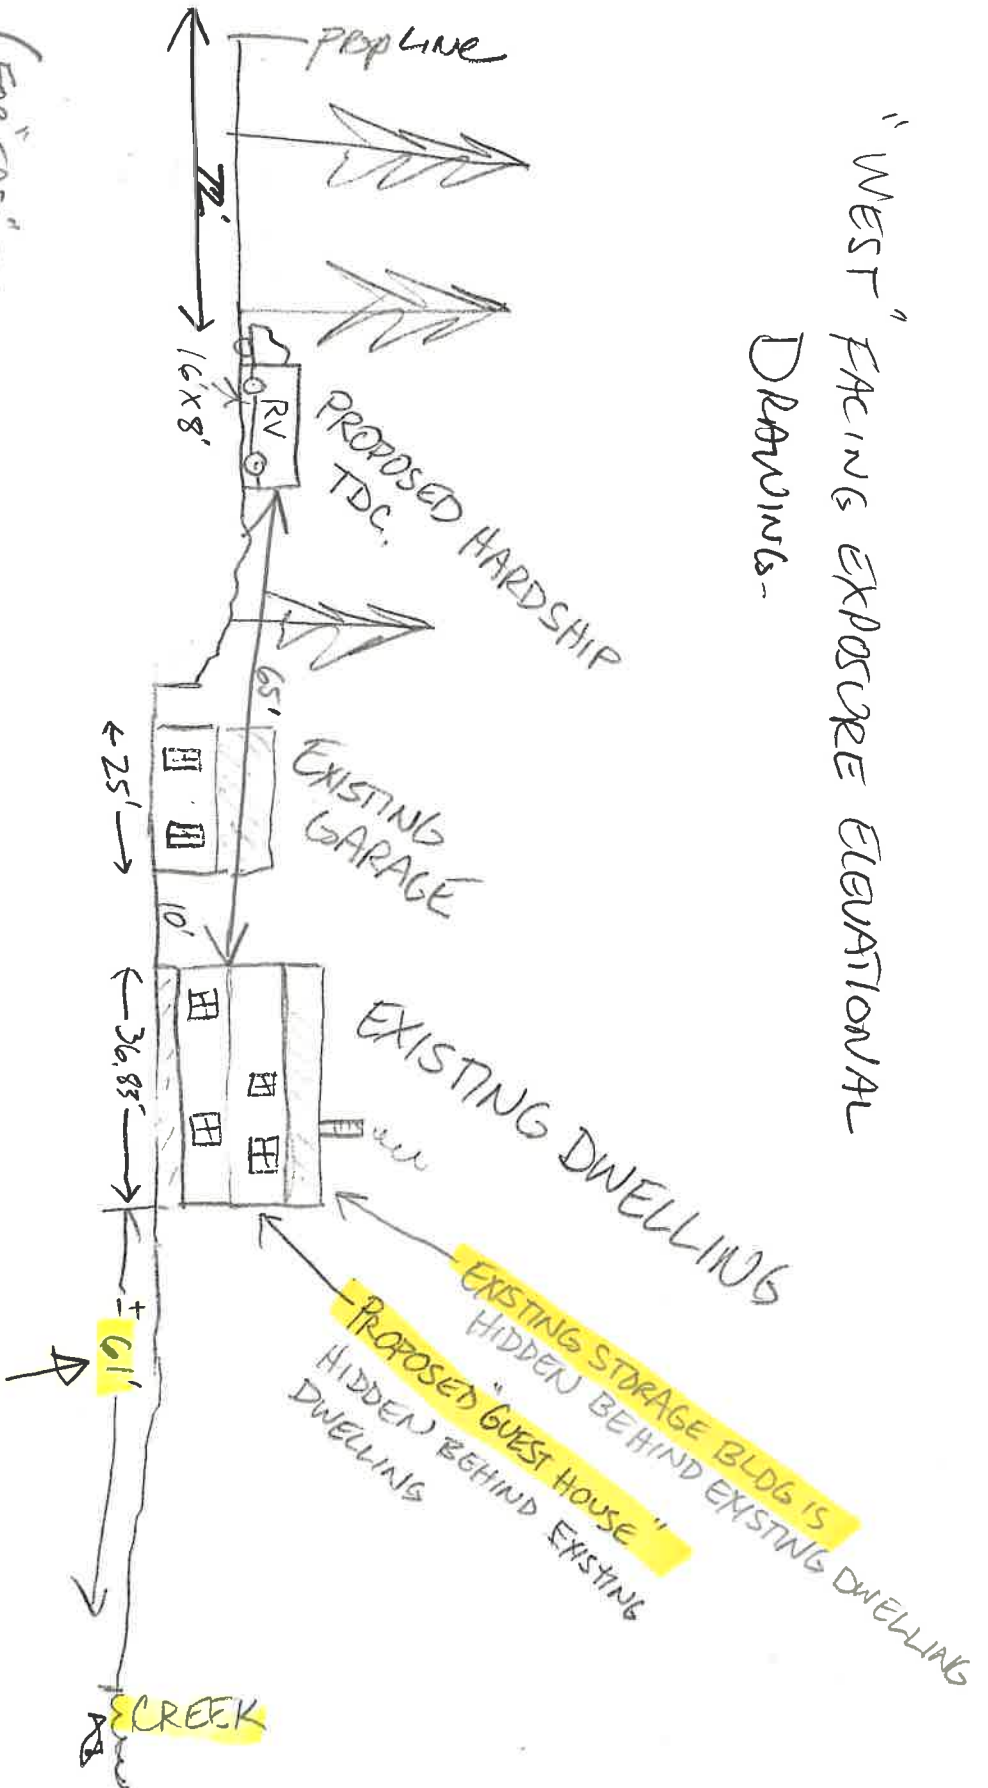 "WEST" FACING EXPOSURE ELEVATIONAL
DRAWINGS-
PROP LINE
72'
16'X8'
RV
PROPOSED HARDSHIP
TDC.
65'
EXISTING
GARAGE
25'
10'
EXISTING DWELLING
36.83'
EXISTING STORAGE BLDG IS
HIDDEN BEHIND EXISTING DWELLING
PROPOSED "GUEST HOUSE"
HIDDEN BEHIND EXISTING
DWELLING
± 61'
CREEK